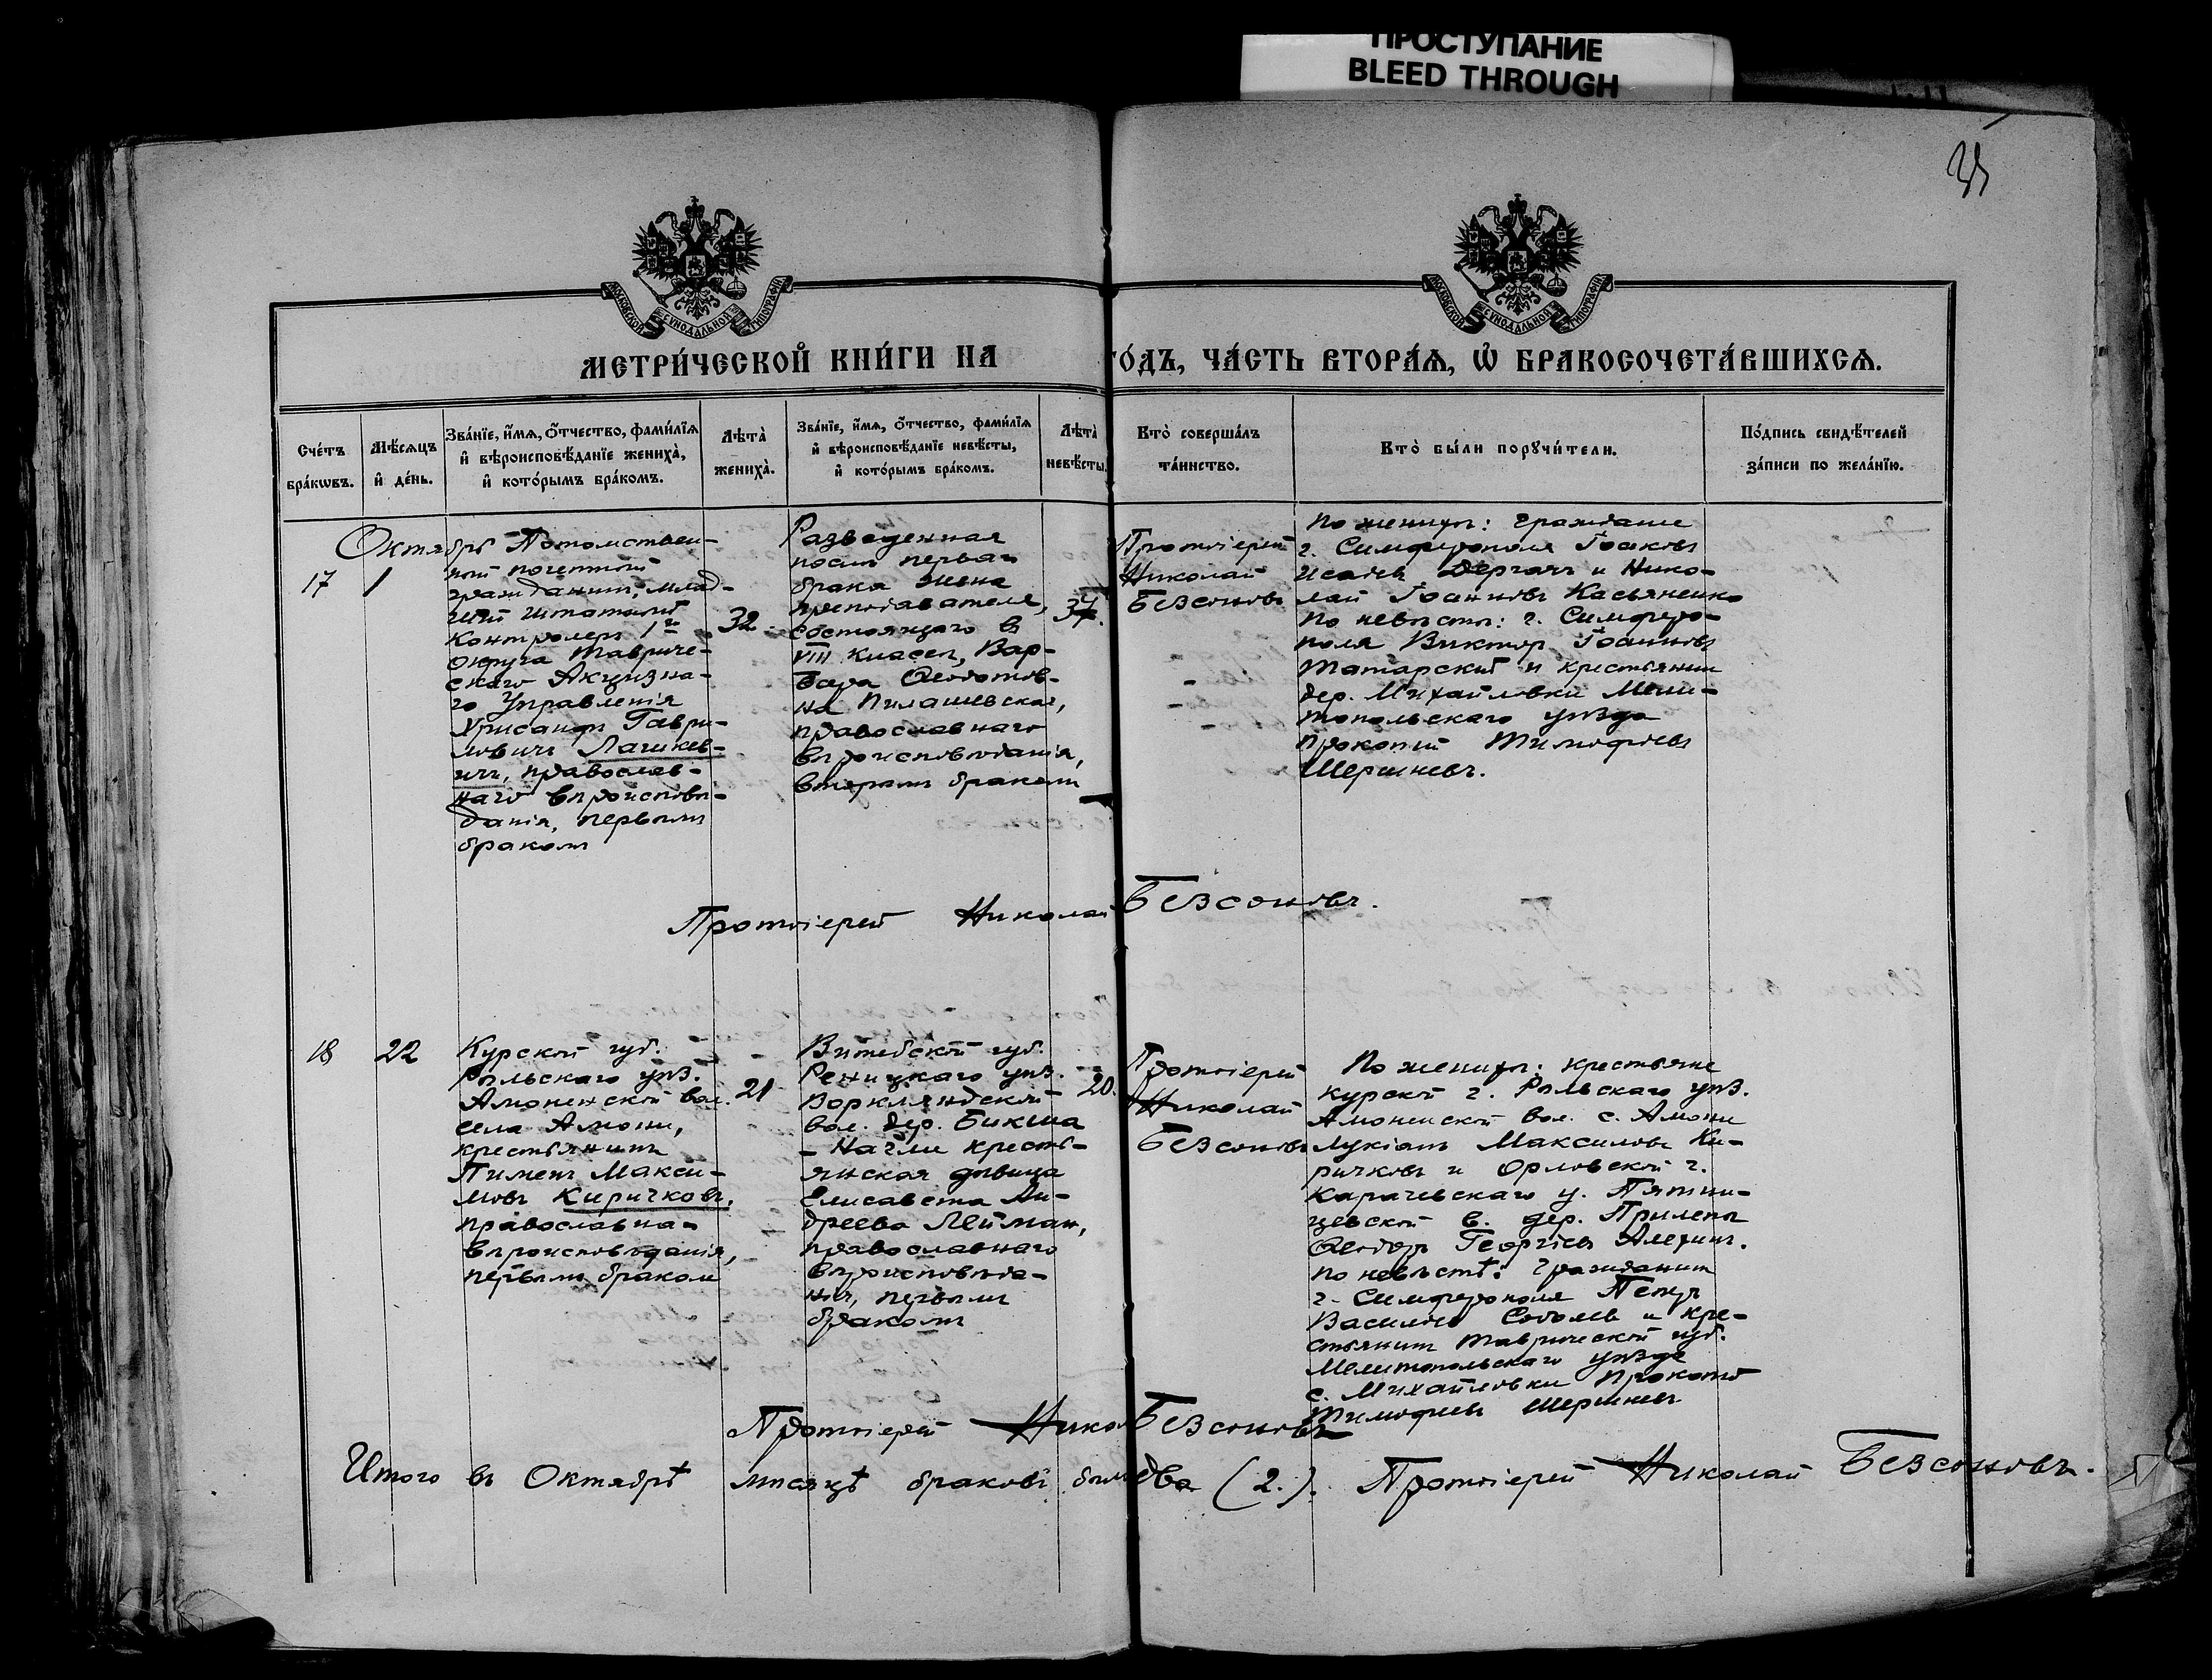 ПРОСТУПАНИЕ
BLEED THROUGH
МОСКОВСКОЙ СѴНОДАЛЬНОЙ ТИПОГРАФІИ
МОСКОВСКОЙ СѴНОДАЛЬНОЙ ТИПОГРАФІИ
МЕТРИ́ЧЕСКОЙ КНИ́ГИ НА
ГО́ДЪ, ЧА́СТЬ ВТОРА́Ѧ, Ѡ҆ БРАКОСОЧЕТА́ВШИХСѦ.
Сче́тъ
бра́кѡвъ.
Мѣ́сѧцъ
и҆ де́нь.
Зва́нїе, и҆́мѧ, ѻ҆́тчество, фами́лїѧ
и҆ вѣроисповѣ́данїе жениха̀,
и҆ кото́рымъ бра́комъ.
Лѣта̀
жениха̀.
Зва́нїе, и҆́мѧ, ѻ҆́тчество, фами́лїѧ
и҆ вѣроисповѣ́данїе невѣ́сты,
и҆ кото́рымъ бра́комъ.
Лѣта̀
невѣ́сты.
Кто̀ соверша́лъ
та́инство.
Кто̀ бы́ли порꙋчи́тели.
По́дпись свидѣ́телей
за́писи по жела́нїю.
Октябрь
17
1
Потомствен-
ный почетный
гражданинъ, млад-
шій штатный
контролеръ 1го
округа Тавриче-
скаго Акцизна-
го Управленія
Хрисанфъ Гаври-
ловичъ Лашкев-
ичъ, православ-
наго вѣроисповѣ-
данія, первымъ
бракомъ
32.
Разведенная
послѣ перваго
брака жена
преподавателя,
состоящаго въ
VIII классѣ, Вар-
вара Ѳеодотов-
на Пилашевская,
православнаго
вѣроисповѣданія,
вторымъ бракомъ
37.
Протоіерей
Николай
Безсоновъ
По женихѣ: граждане
г. Симферополя Іоаковъ
Исаевъ Дергачъ и Нико-
лай Іоанновъ Касьяненко
По невѣстѣ: г. Симферо-
поля Викторъ Іоанновъ
Татарскій и крестьянинъ
дер. Михайловки Мели-
топольскаго уѣзда
Прокопій Тимофеевъ
Шершневъ.
Протоіерей Николай Безсоновъ.
18
22
Курской губ.
Рыльскаго уѣз.
Амоненской вол.
села Амони,
крестьянинъ
Пименъ Макси-
мовъ Киричковъ,
православна-
вѣроисповѣданія,
первымъ бракомъ
21
Витебской губ.
Рѣжицкаго уѣз.
Варкляндской
вол. дер. Бикша
- Нагли кресть-
янская дѣвица
Елисавета Ан-
дреева Лейман,
православнаго
вѣроисповѣда-
нія, первымъ
бракомъ
20.
Протоіерей
Николай
Безсоновъ
По женихѣ: крестьяне
Курской г. Рыльскаго уѣз.
Амоненской вол. с. Амони
Лукіанъ Максимовъ Ки-
ричковъ и Орловской г.
Карачевскаго у. Пятни-
цевской в. дер. Прилепы
Ѳеодоръ Георгіевъ Алехинъ.
По невѣстѣ: гражданинъ
г. Симферополя Петръ
Василіевъ Соболевъ и кре-
стьянинъ Таврической губ.
Мелитопольскаго уѣзда
с. Михайловки Прокопій
Тимофеевъ Шершневъ
Протоіерей Никол Безсоновъ
Итого въ Октябрѣ мѣсяцѣ браковъ было два (2.). Протоіерей Николай Безсоновъ.